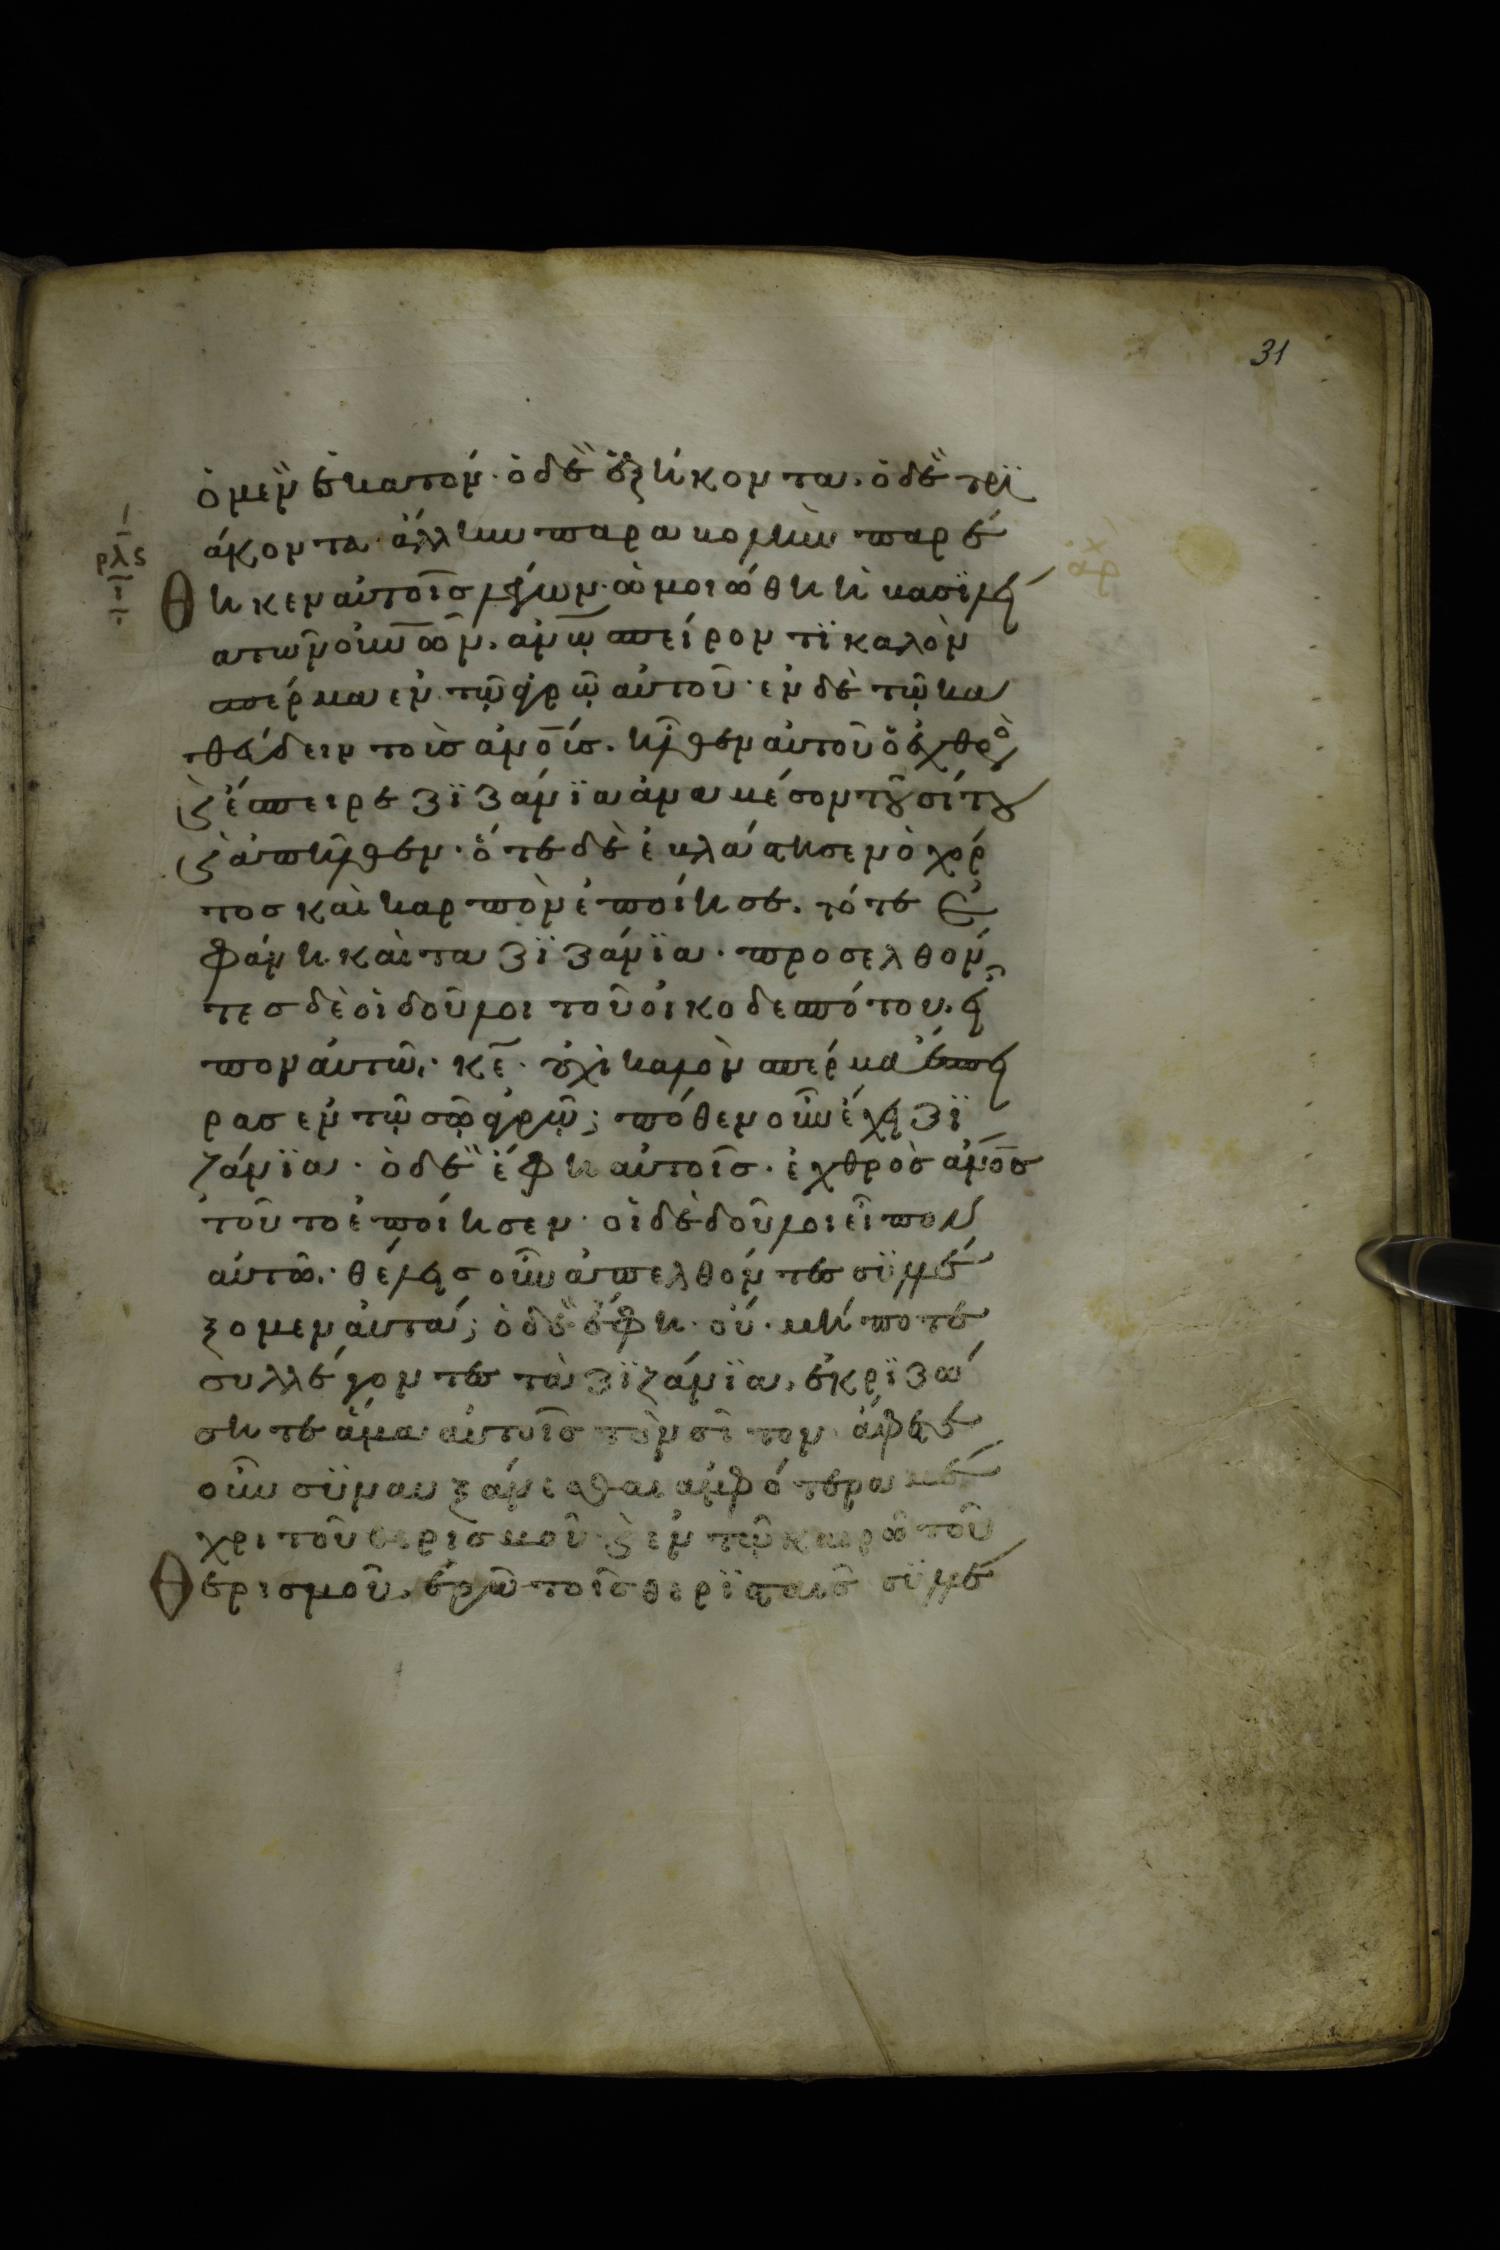 31
ὁ μὲν ἑκατόν· ὁ δὲ ἑξήκοντα. ὁ δὲ τρϊ
άκοντα· ἄλλην παραβολὴν παρέ
ρλς
θηκεν αὐτοῖς λέγων· ὡμοιώθη ἡ βασϊλεί
α τῶν οὐνῶν. ἀνω σπείροντϊ καλὸν
σπέρμα ἐν τῷ ἀγρῷ αὐτοῦ· ἐν δὲ τῷ κα
θεύδειν τοὺς ανους. ἦλθεν αὐτοῦ ὁ ἐχθρὸ
ς ϗ ἔσπειρε ζϊζάνϊα ἀνα μέσον τοῦ σίτου
ϗ ἀπῆλθεν· ὅτε δὲ ἐβλάστησεν ὁ χόρ
τος καὶ καρπὸν ἐποίησε. τότε ἐ
φάνη καὶ τα ζϊζάνϊα· προσελθόν
τες δὲ οἱ δοῦλοι τοῦ οἰκοδεσπότου. εἶ
πον αὐτῶ· κε· οὐχὶ καλὸν σπέρμα ἔσπει
ρας ἐν τῷ σῷ ἀγρῷ; πόθεν οὖν ἔχει ζϊ
ζάνϊα· ὁ δὲ ἔφη αὐτοῖς· ἐχθρὸς ανος
τοῦτο ἐποίησεν· οἱ δὲ δοῦλοι εἶπον
αὐτῶ· θέλεις οὖν ἀπελθόντες συλλέ
ξομεν αὐτά; ὁ δὲ ἔφη· οὔ· μήποτε
συλλέγοντες τὰ ζϊζάνϊα. ἐκρϊζώ
σητε ἅμα αὐτοῖς τὸν σῖτον· ἄφετε
οὖν συναυξάνεσθαι ἀμφότερα μέ
χρι τοῦ θερισμοῦ· ϗ ἐν τῷ καιρῶ τοῦ
θερισμοῦ. ἐρῶ τοῖς θερϊσταις συλλέ